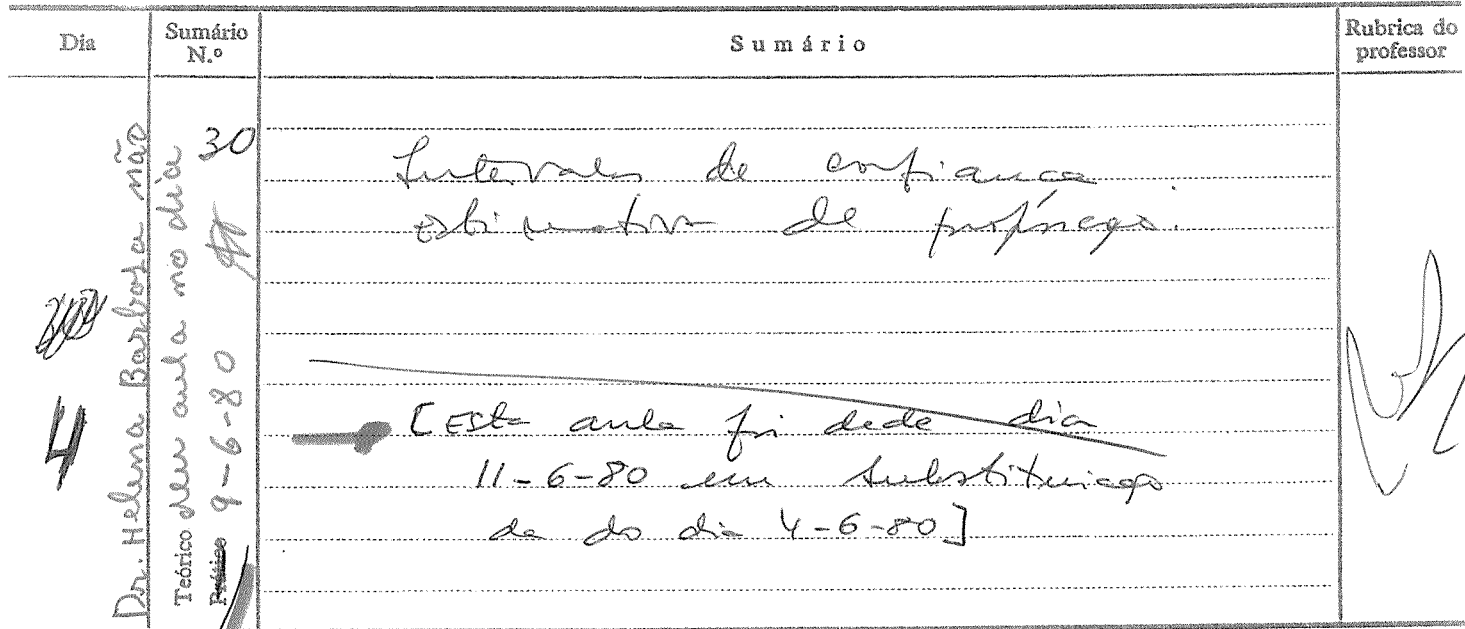 Dia
Sumário
N.º
Sumário
Rubrica do
professor
4
Dr. Helena Barbosa não
Teórico deu aula no dia
Prático 9-6-80
30
Intervalos de confiança
estimativa de proporção.
[Esta aula foi dada dia
11-6-80 em substituição
da do dia 4-6-80]